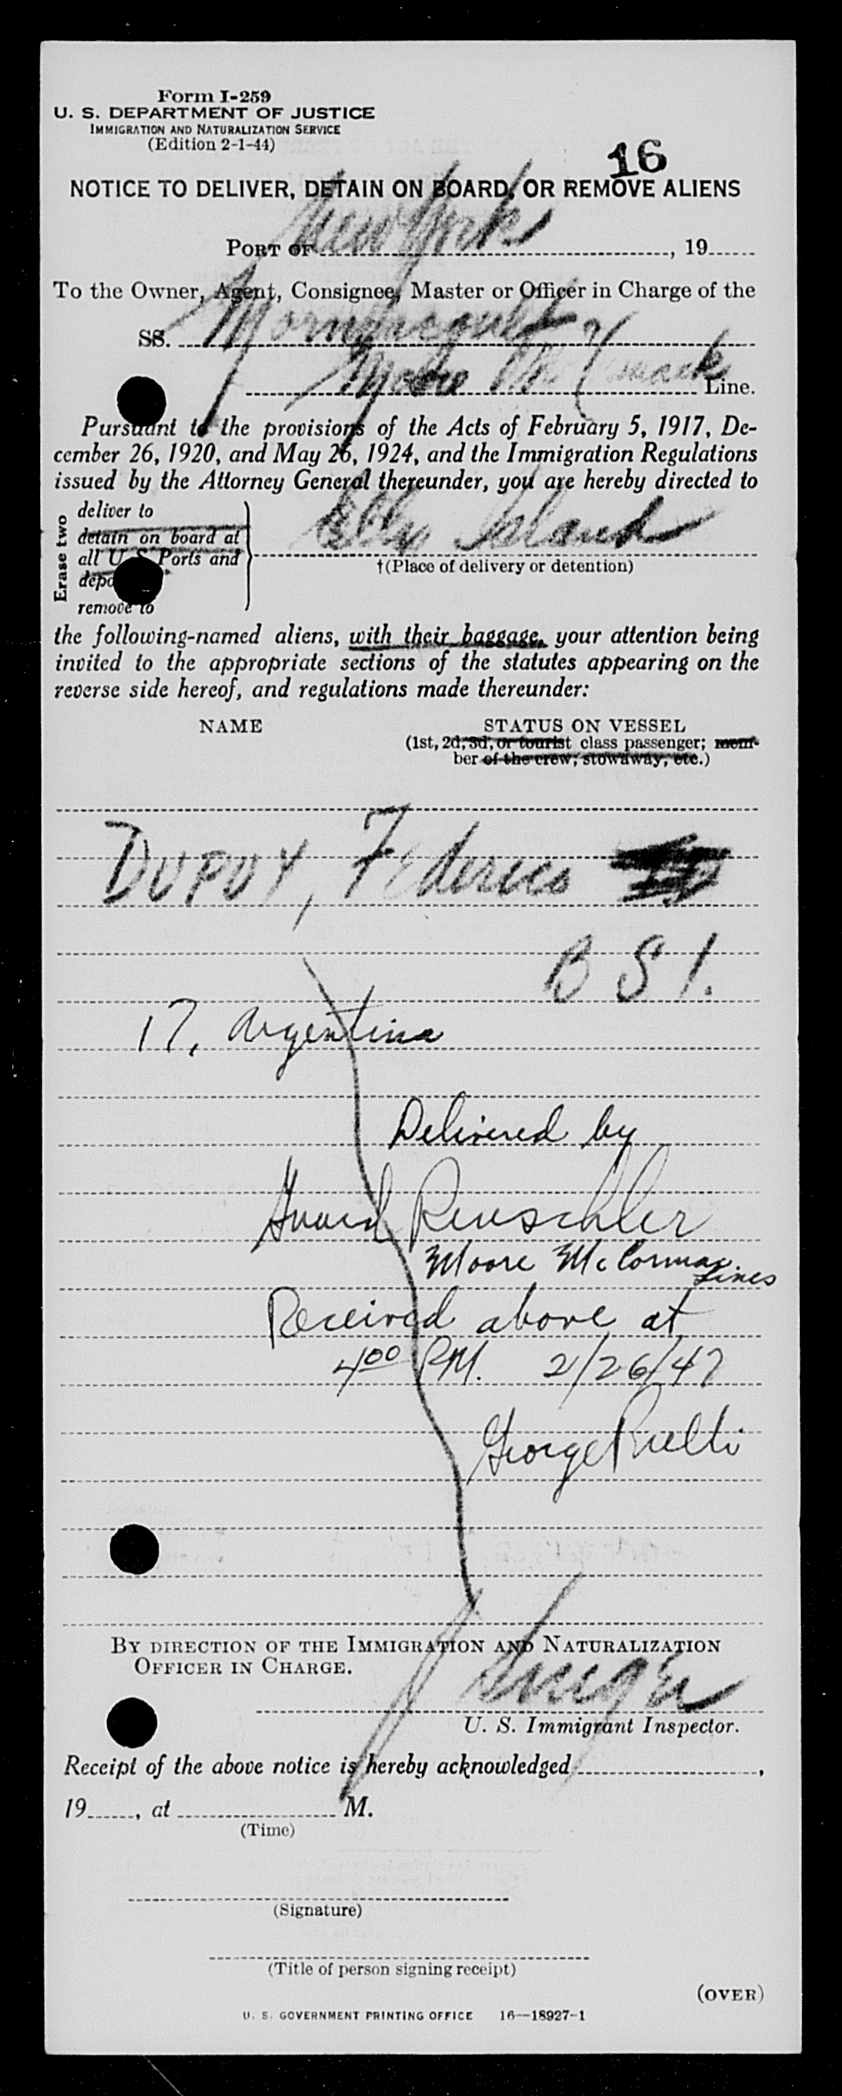 Form I-259
U. S. DEPARTMENT OF JUSTICE
IMMIGRATION AND NATURALIZATION SERVICE
(Edition 2-1-44)
16
NOTICE TO DELIVER, DETAIN ON BOARD, OR REMOVE ALIENS
PORT OF New York, 19
To the Owner, Agent, Consignee, Master or Officer in Charge of the
SS.
Moore Mc Cormack Line.
Pursuant to the provisions of the Acts of February 5, 1917, De-
cember 26, 1920, and May 26, 1924, and the Immigration Regulations
issued by the Attorney General thereunder, you are hereby directed to
Erase two
deliver to
detain on board at
all U S Ports and
remove to
Ellis Island
†(Place of delivery or detention)
the following-named aliens, with their baggage, your attention being
invited to the appropriate sections of the statutes appearing on the
reverse side hereof, and regulations made thereunder:
NAME STATUS ON VESSEL
(1st, 2d, 3d, or tourist class passenger; mem-
ber of the crew; stowaway, etc.)
DUPUY, Federico
B S I.
17, Argentina
Delivered by
Guard Reuschler
Moore McCormac
Lines
Received above at
4 00 P.M. 2/26/47
George
BY DIRECTION OF THE IMMIGRATION AND NATURALIZATION
OFFICER IN CHARGE.
U. S. Immigrant Inspector.
Receipt of the above notice is hereby acknowledged ,
19 , at M.
(Time)
(Signature)
(Title of person signing receipt)
(OVER)
U. S. GOVERNMENT PRINTING OFFICE 16—18927-1